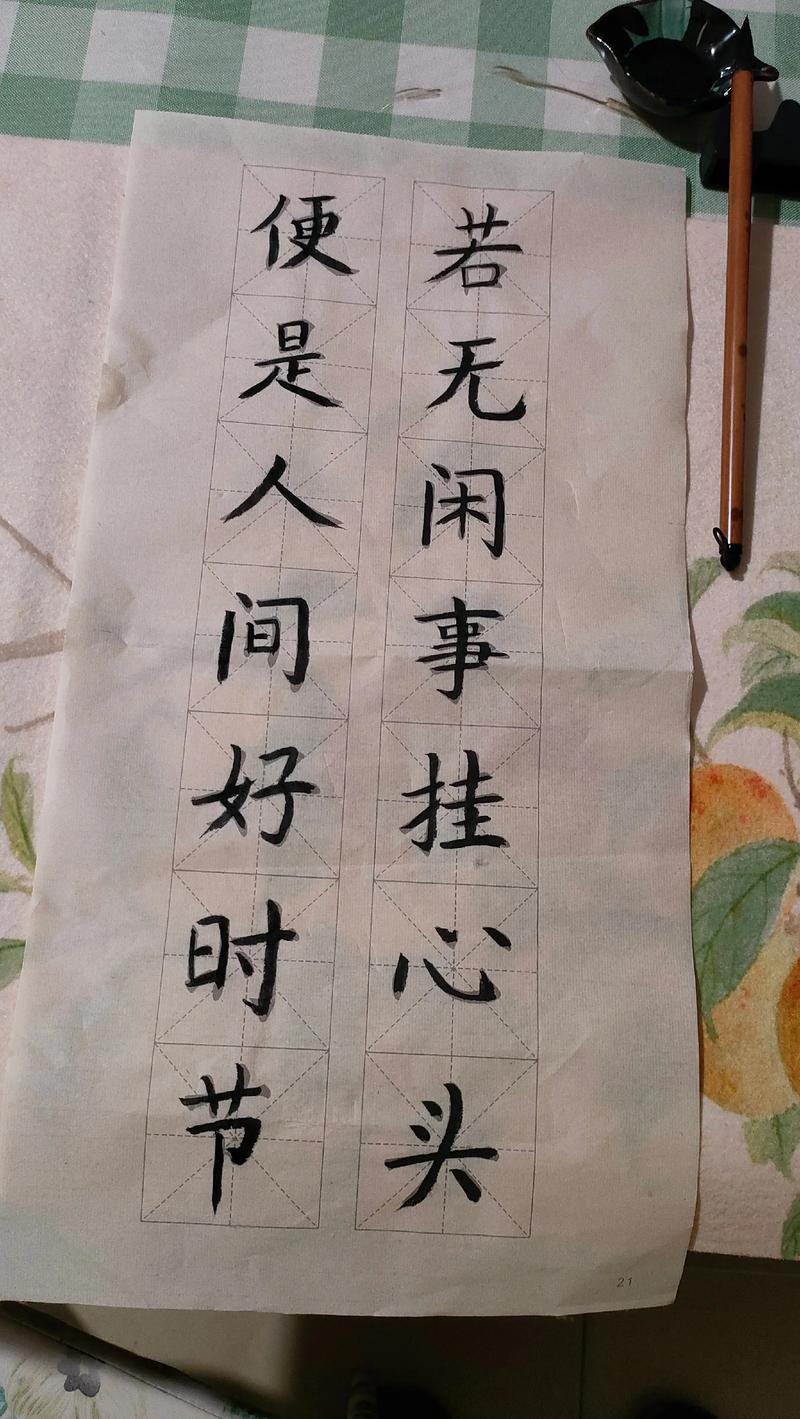 若无闲事挂心头
便是人间好时节
21